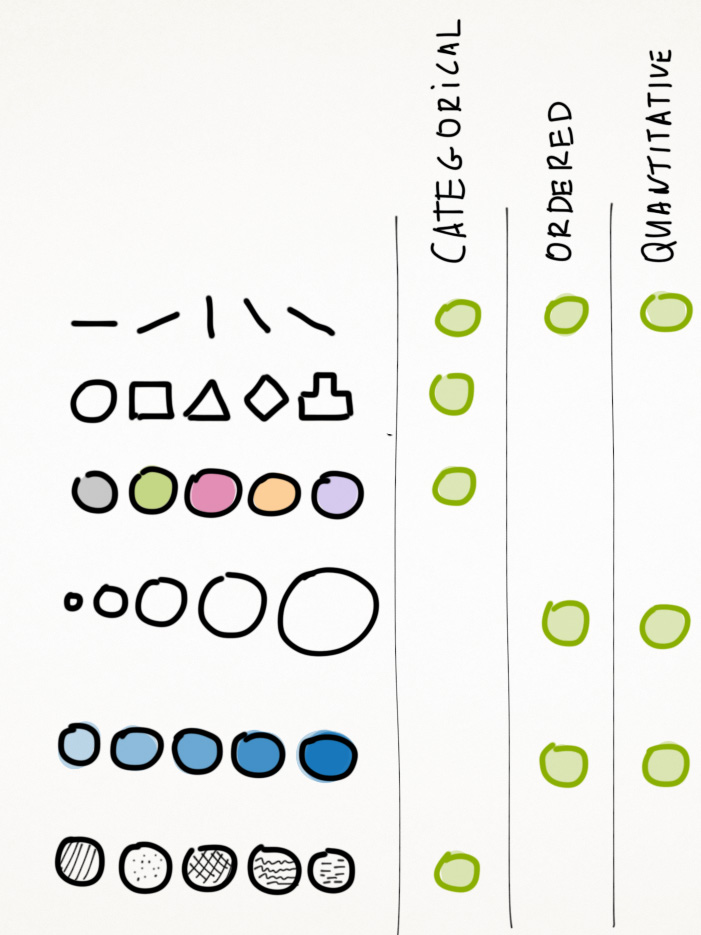 CATEGORiCAL
ORDERED
QUANTITATIVE